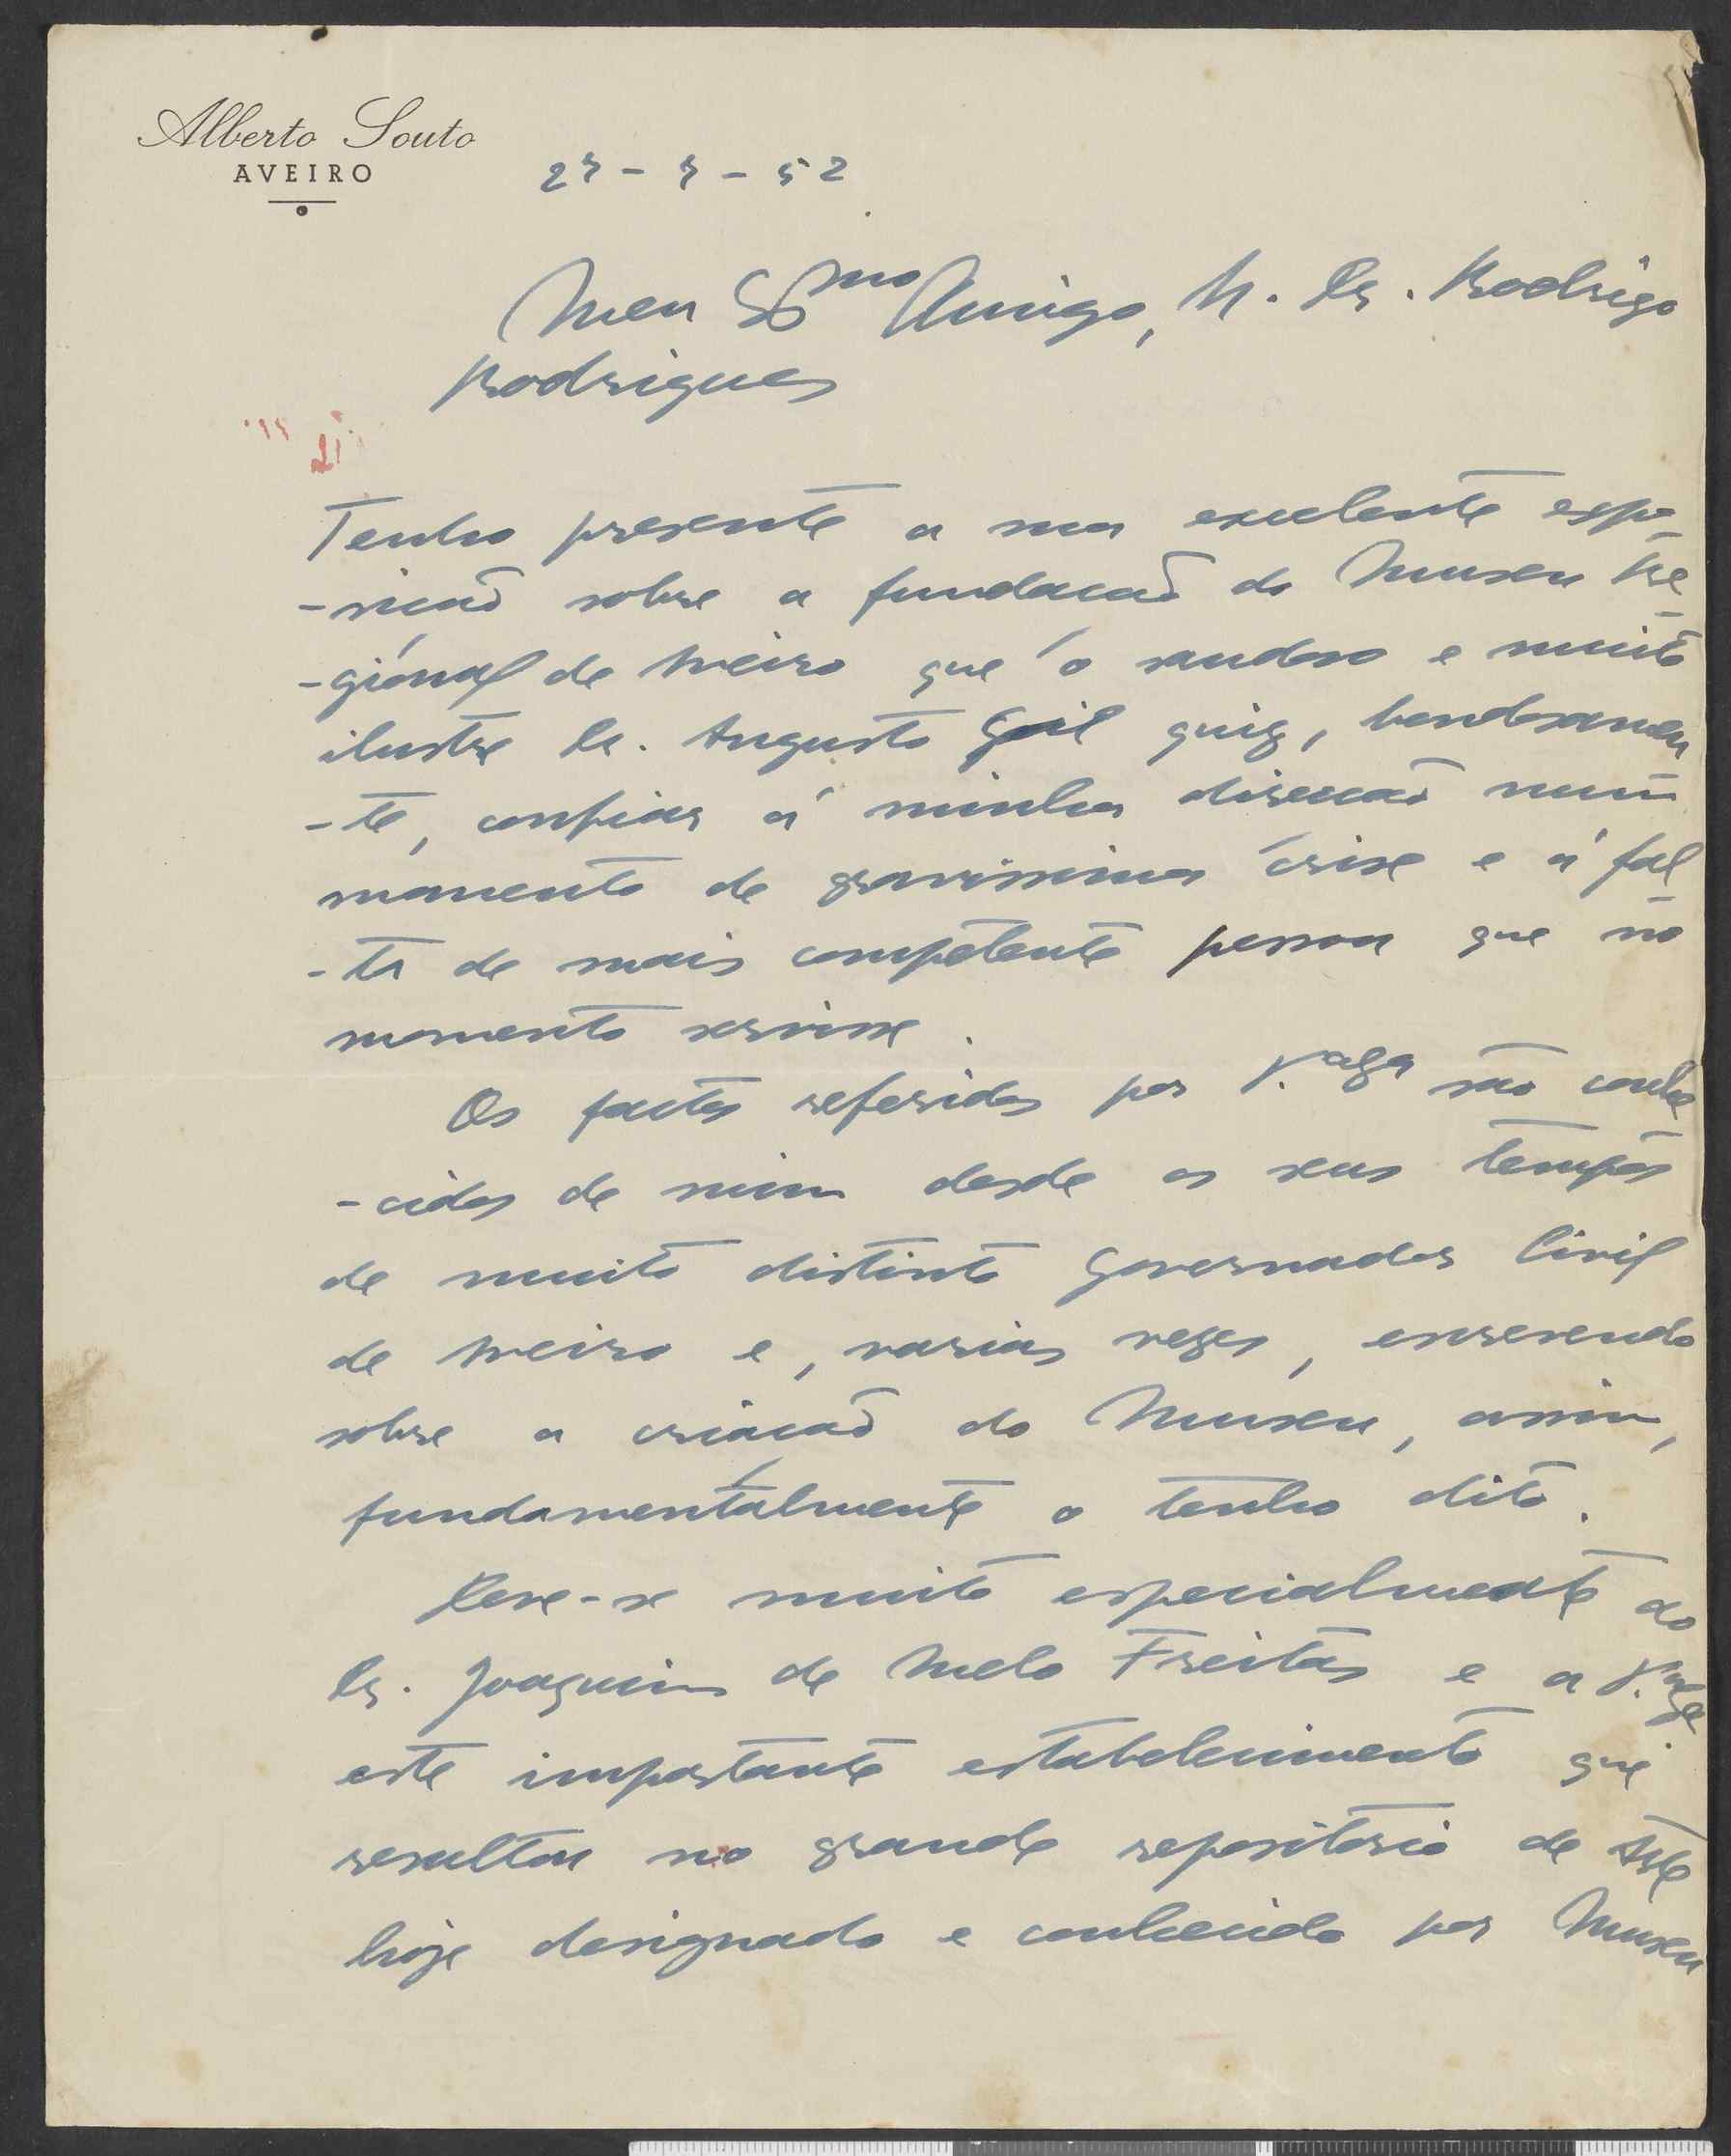 Alberto Souto
AVEIRO
Meu Exmo Amigo, Sr. Dr. Rodrigo
Rodrigues
Tenho presente a sua excelente expo-
-sicaõ sobre a fundacaõ do Museu Re-
-gional de Aveiro que o saudoso e muito
ilustre Dr. Augusto Gil quiz, bondosamen
-te, confiar á minha direccaõ num
momento de gravissima crise e á fal
-ta de mais competente pessoa que no
momento servisse.
Os factos referidos por V. são conhe
-cidos de mim desde os seus tempos
de muito distinto Governador Civil
de Aveiro e, varias vezes, escrevendo
sobre a criacaõ do Museu, assim,
fundamentalmente o tenho dito.
Deve-se muito especialmente ao
Dr. Joaquim de Melo Freitas e a V.
este importante estabelecimento que
resultou no grande repositorio de Arte
hoje designado e conhecido por Museu